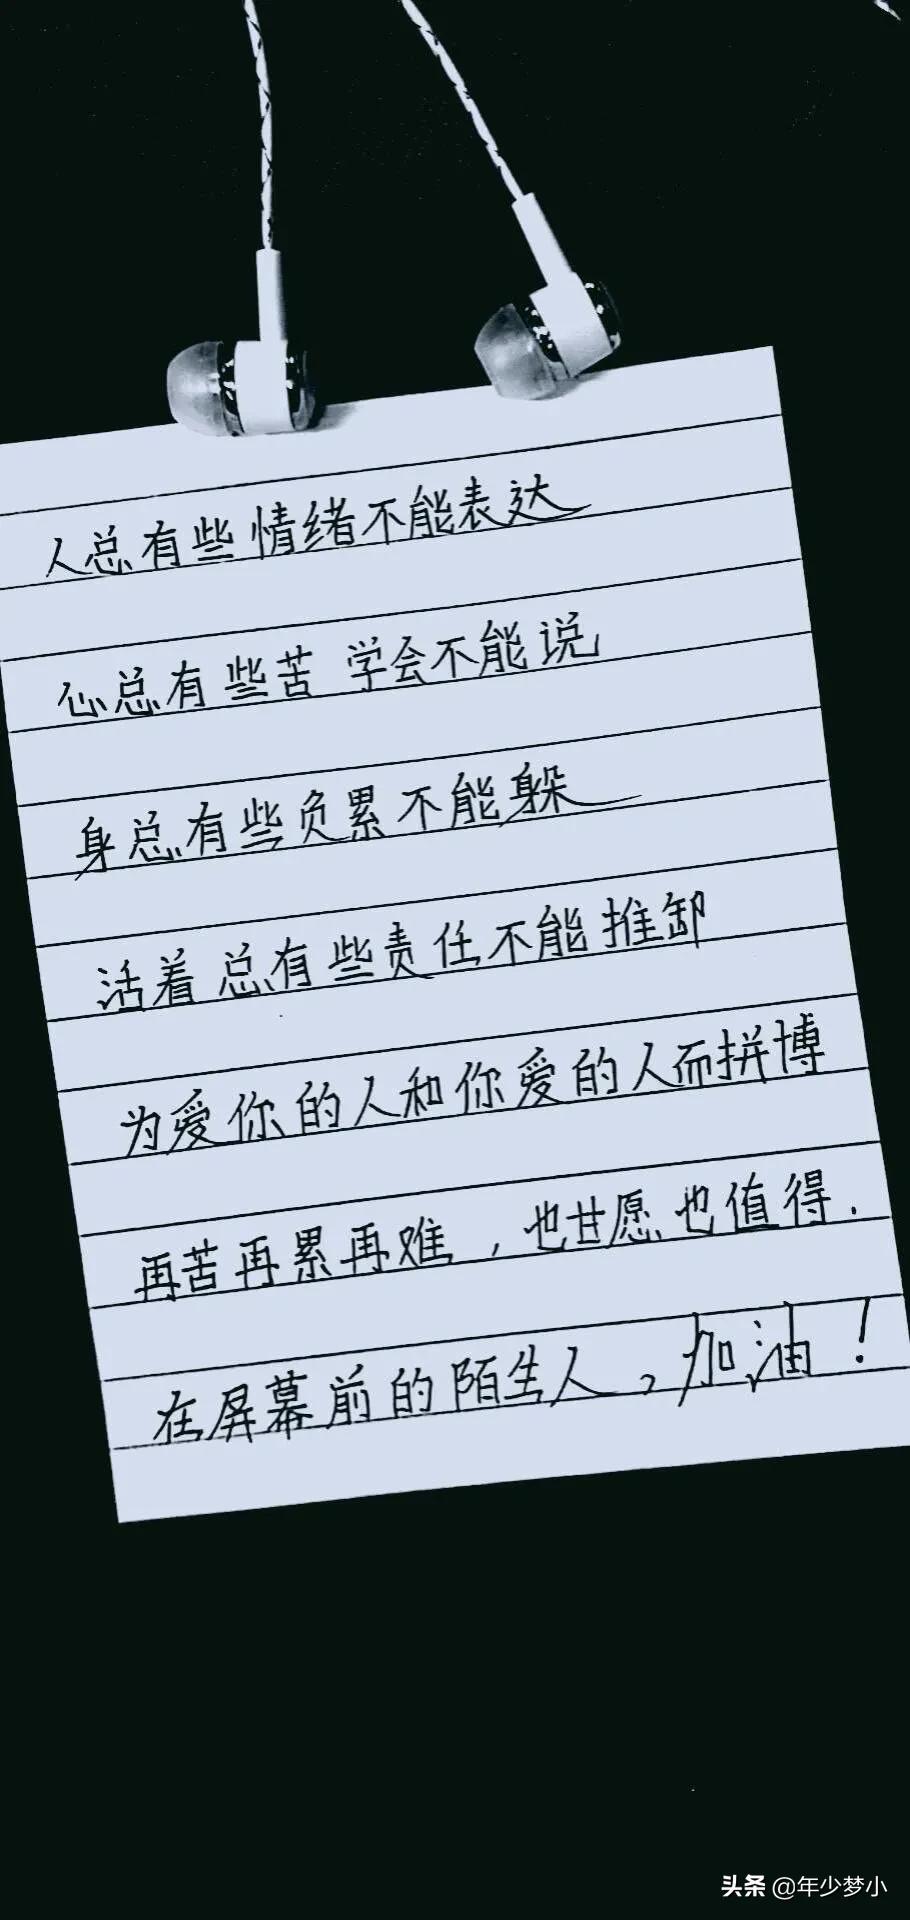 人总有些情绪不能表达
心总有些苦 学会不能说
身总有些负累不能躲
活着总有些责任不能推卸
为爱你的人和你爱的人而拼博
再苦再累再难，也甘愿也值得.
在屏幕前的陌生人，加油！
头条 @年少梦小